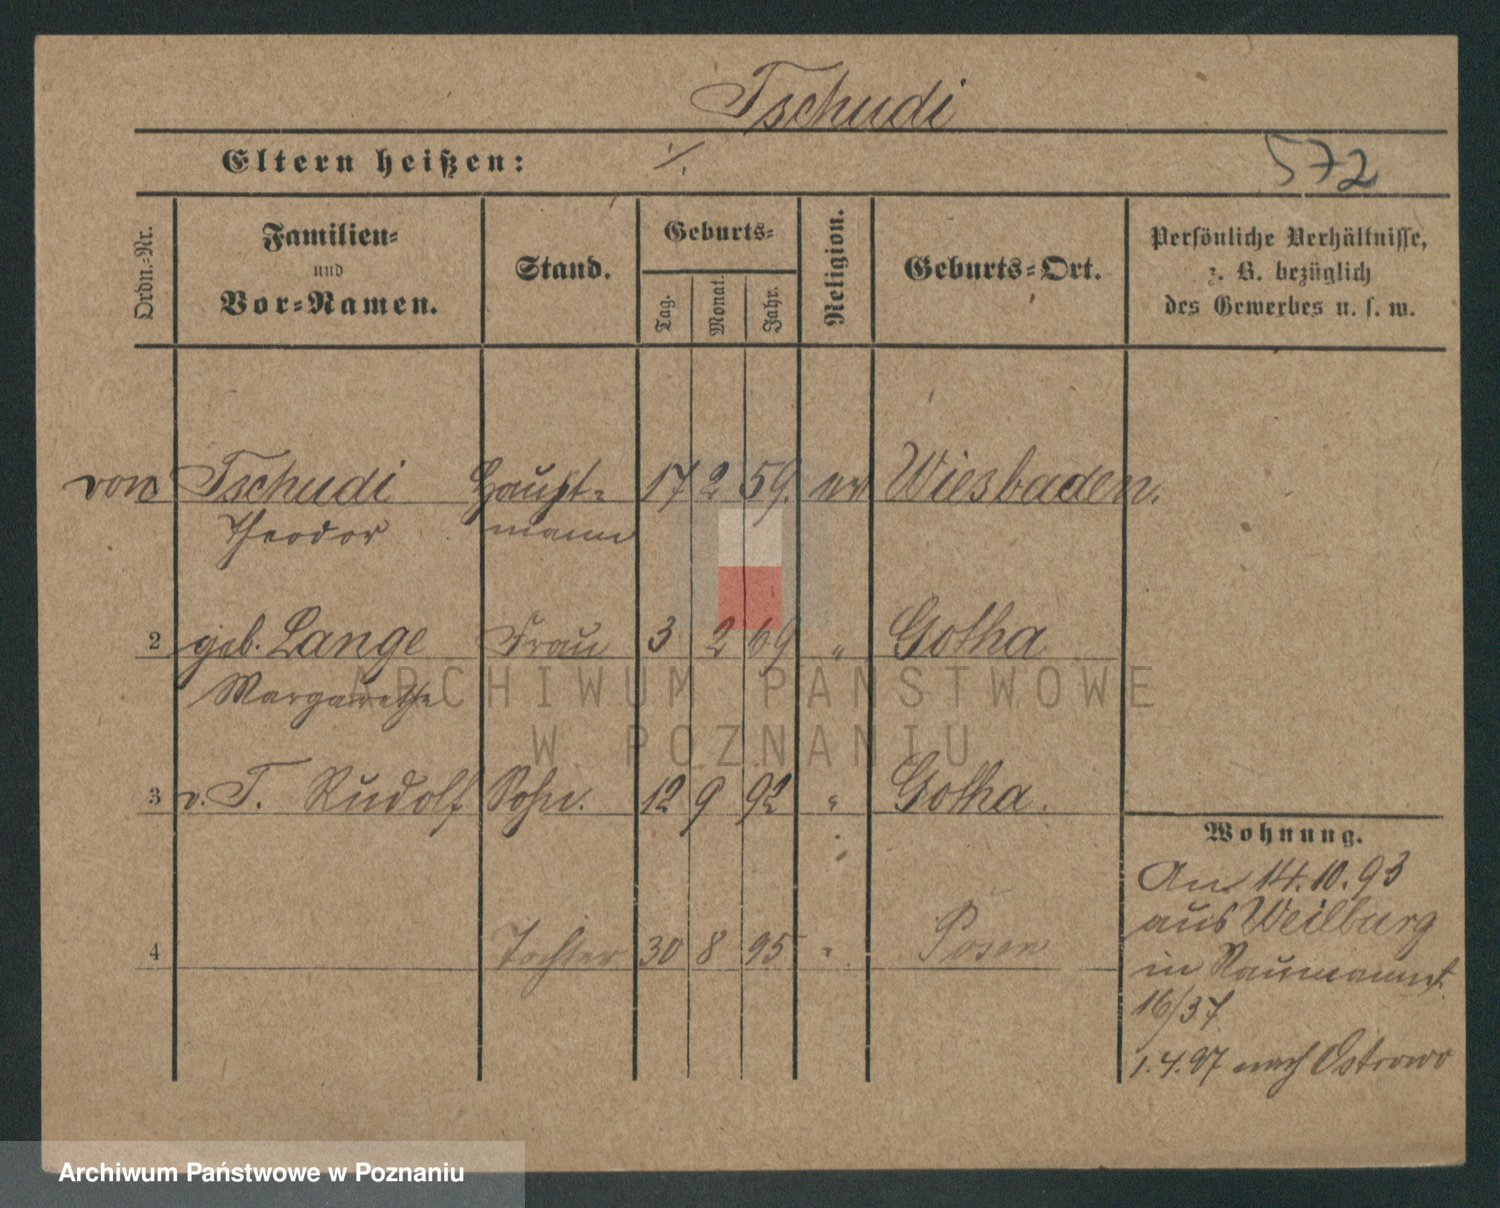 Tschudi
Eltern heißen: ·/.
572
Ordn.-Nr.
Familien-
und
Vor-Namen.
Stand.
Geburts-
Tag.
Monat.
Jahr.
Religion.
Geburts-Ort.
Persönliche Verhältnisse,
z. B. bezüglich
des Gewerbes u. s. w.
von Tschudi Haupt- 17 2 59. ev Wiesbaden.
Theodor mann
2 geb. Lange Frau 3 2 69 " Gotha
Margarethe
3 v. T. Rudolf Sohn. 12 9 92 " Gotha.
4 Tochter 30 8 95 " Posen
Wohnung.
An 14.10.93
aus Weilburg
in Naumannst
16/37
1.4.97 nach Ostrowo
ARCHIWUM PAŃSTWOWE
W POZNANIU
Archiwum Państwowe w Poznaniu